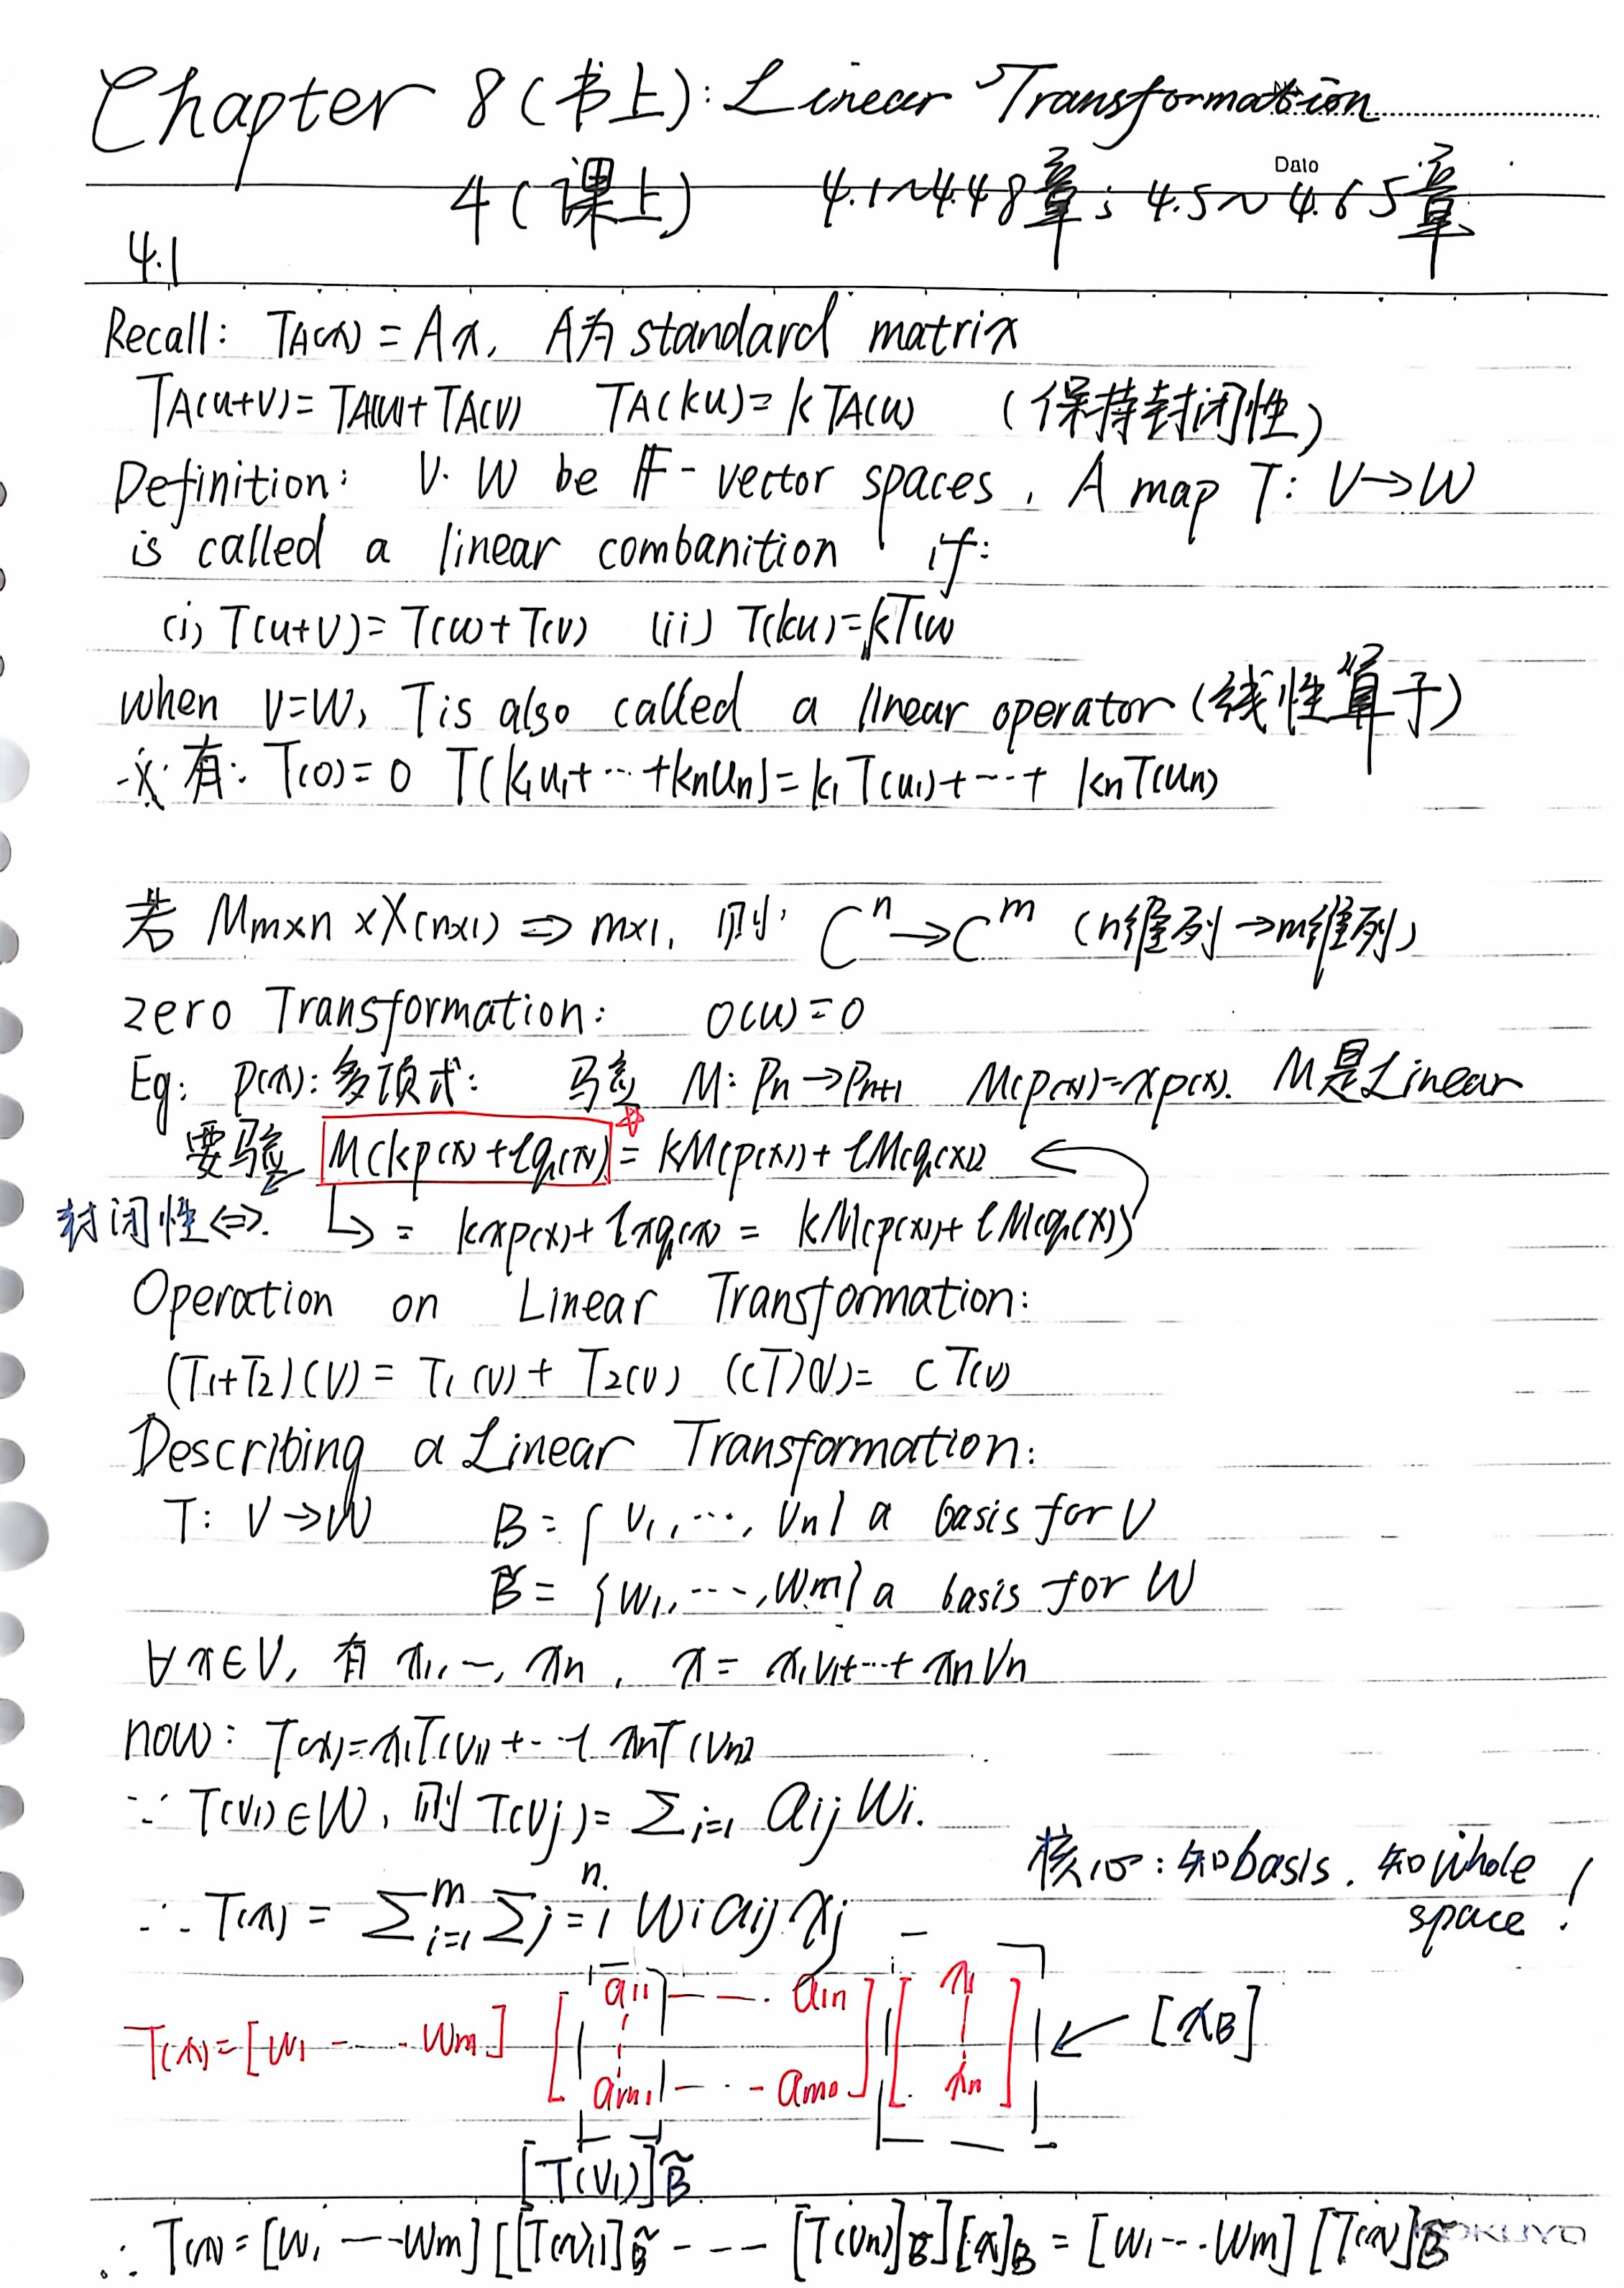 Chapter 8(书上): Linear Transformation
Date
4(课上) 4.1~4.4 8章; 4.5~4.6 5章
4.1
Recall: TA(x) = Ax, A为 standard matrix
TA(u+v)= TA(u)+TA(v) TA(ku)= kTA(u) (保持封闭性)
Definition: V. W be 𝔽-vector spaces, A map T: V→W
is called a linear combanition if:
(i) T(u+v)= T(u)+T(v) (ii) T(ku)=kT(u)
when V=W, T is also called a linear operator(线性算子)
※有: T(0)=0 T(k1u1+···+knun)=k1T(u1)+···+ knT(un)
若 Mm×n × X(n×1) ⇒ m×1, 则: Cⁿ→Cᵐ (n维列→m维列)
zero Transformation: 0(u)=0
Eg: p(x):多项式: 验 M: Pn→Pn+1 M(p(x))=xp(x). M是Linear
要验 M(kp(x)+lq(x))☆= kM(p(x))+lM(q(x)) ←
封闭性⇔. ↳ = kxp(x)+lxq(x) = kM(p(x))+lM(q(x))
Operation on Linear Transformation:
(T1+T2)(V)= T1(v)+T2(v) (cT)(v)= cT(v)
Describing a Linear Transformation:
T: V→W B={v1,···,vn} a basis for V
B̃= {w1,···,wm} a basis for W
∀x∈V, 有 x1,…,xn, x= x1v1+···+xnvn
now: T(x)=x1T(v1)+···+xnT(vn)
∵ T(v1)∈W, 则 T(vj)= Σi=1 aij wi.
核心:知basis. 知whole
space!
∴ T(x)= Σᵐi=1 Σⁿj=1 wi aij xj
T(x)=[w1 --- wm] [a11 --- a1n ⋮ am1 --- amn] [x1 ⋮ xn] ← [xB]
[T(v1)]B̃
∴ T(x)=[w1 --- wm] [[T(v1)]B̃ --- [T(vn)]B̃][x]B = [w1 --- wm] [T(x)]B̃
KOKUYO